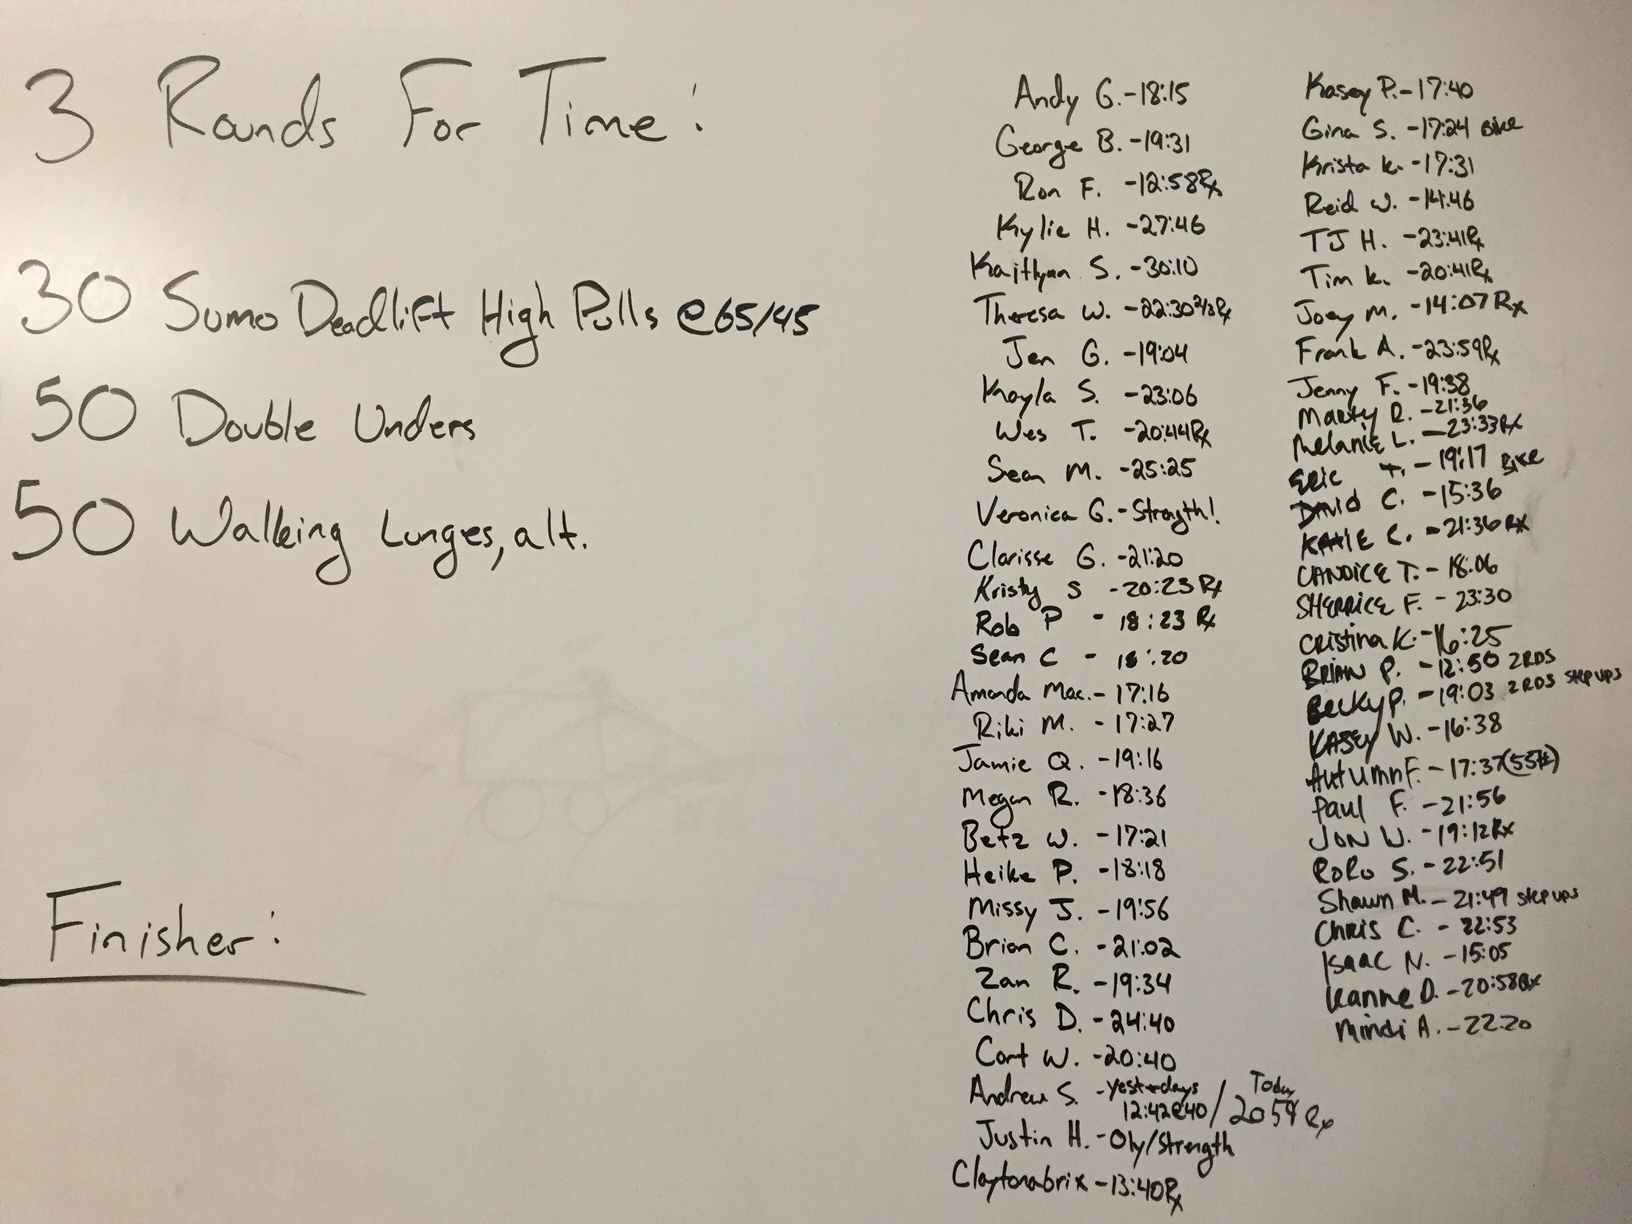 3 Rounds For Time:
30 Sumo Deadlift High Pulls @65/45
50 Double Unders
50 Walking Lunges, alt.
Finisher:
Andy G. - 18:15
George B. - 19:31
Ron F. - 12:58 Rx
Kylie H. - 27:46
Kaitlynn S. - 30:10
Theresa W. - 22:30 2/3 Rx
Jen G. - 19:04
Kayla S. - 23:06
Wes T. - 20:44 Rx
Sean M. - 25:25
Veronica G. - Strength!
Clarisse G. - 21:20
Kristy S - 20:23 Rx
Rob P - 18:23 Rx
Sean C - 18:20
Amanda Mac. - 17:16
Riki M. - 17:27
Jamie Q. - 19:16
Megan R. - 18:36
Betz W. - 17:21
Heike P. - 18:18
Missy J. - 19:56
Brian C. - 21:02
Zan R. - 19:34
Chris D. - 24:40
Cort W. - 20:40
Andrew S. - Yesterdays 12:42@40 / Today 20:59 Rx
Justin H. - Oly/Strength
Claytonabrix - 13:40 Rx
Kasey P. - 17:40
Gina S. - 17:24 Bike
Krista K. - 17:31
Reid W. - 14:46
TJ H. - 23:41 Rx
Tim K. - 20:41 Rx
Joey M. - 14:07 Rx
Frank A. - 23:59 Rx
Jenny F. - 19:38
Marty R. - 21:36
Melanie L. - 23:33 Rx
Eric T. - 19:17 Bike
David C. - 15:36
Katie C. - 21:36 Rx
CANDICE T. - 18:06
SHERRICE F. - 23:30
Cristina K. - 16:25
BRIAN P. - 12:50 2 RDS
Becky P. - 19:03 2 RDS step ups
KASEY W. - 16:38
Autumn F. - 17:37 (55#)
Paul F. - 21:56
JON W. - 19:12 Rx
RoRo S. - 22:51
Shawn M. - 21:49 step ups
Chris C. - 22:53
Isaac N. - 15:05
Leanne D. - 20:58 Rx
Mindi A. - 22:20